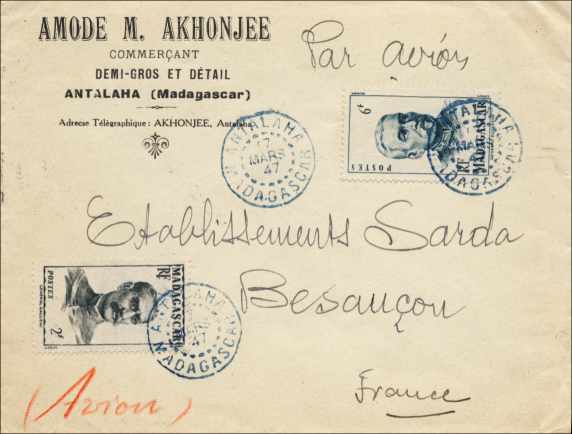 AMODE M. AKHONJEE
COMMERÇANT
DEMI-GROS ET DÉTAIL
ANTALAHA (Madagascar)
Adresse Télégraphique : AKHONJEE, Antalaha
Par avion
ANTALAHA
17
MARS
47
MADAGASCAR
6F
POSTES
RF
MADAGASCAR
ANTALAHA
MADAGASCAR
Etablissements Sarda
Besançon
France
POSTES
2F
RF
MADAGASCAR
ANTALAHA
47
MADAGASCAR
(Avion)